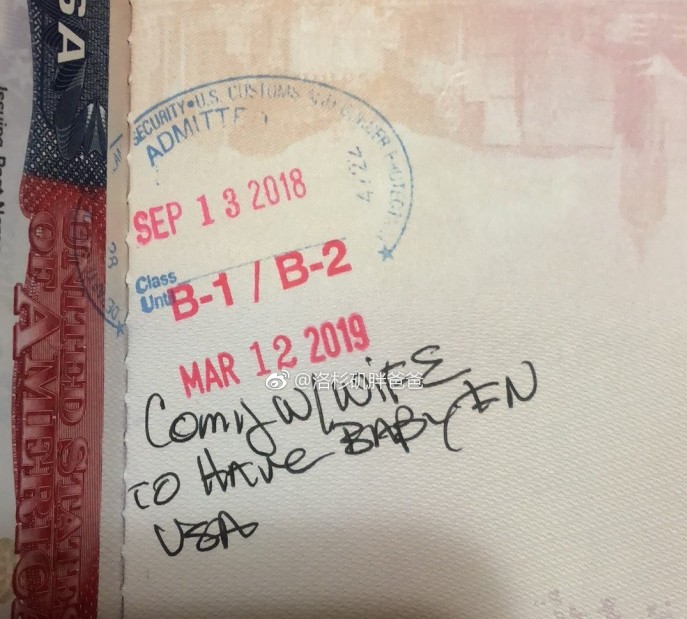 SA
UNITED STATES
OF AMERICA
SECURITY • U.S. CUSTOMS AND BORDER PROTECT
ADMITTE
SEP 13 2018
Class
B-1 / B-2
Until
MAR 12 2019
@洛杉矶胖爸爸
Coming w/ WIFE
TO HAVE BABY IN
USA